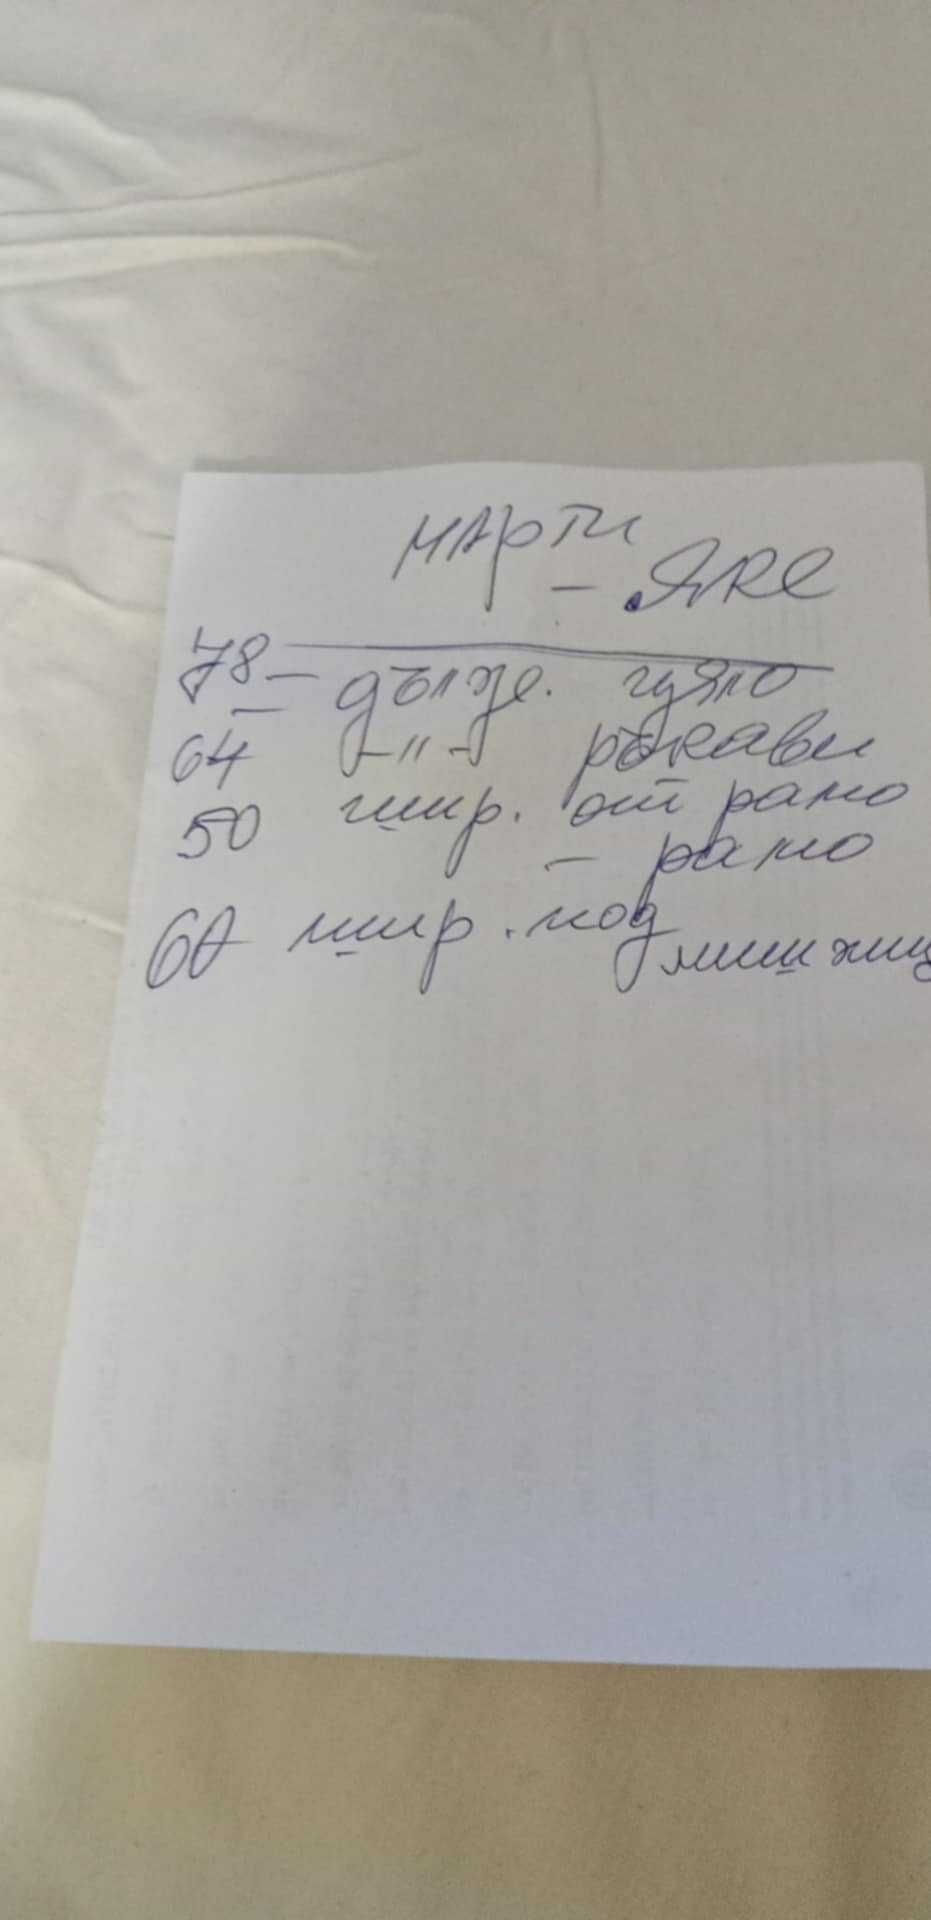 Марти
- Яке
78 - дълж. цяло
64 -"- ръкави
50 шир. от рамо
- рамо
60 шир. под
мишниц